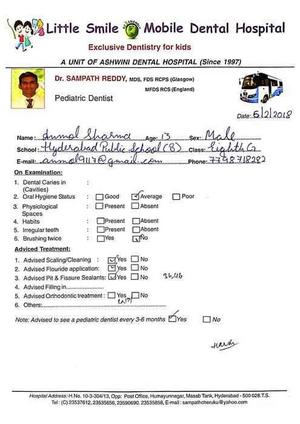 Little Smile Mobile Dental Hospital
Exclusive Dentistry for kids
A UNIT OF ASHWINI DENTAL HOSPITAL (Since 1997)
Dr. SAMPATH REDDY, MDS, FDS RCPS (Glasgow)
MFDS RCS (England)
Pediatric Dentist
Date: 6/2/2018
Name: Anmol Sharma Age: 13 Sex: Male
School: Hyderabad Public School (B) Class: Eighth G
E-mail: anmol9117@gmail.com Phone: 7798718282
On Examination:
1. Dental Caries in :
(Cavities)
2. Oral Hygiene Status : Good Average Poor
3. Physiological : Present Absent
Spaces
4. Habits : Present Absent
5. Irregular teeth : Present Absent
6. Brushing twice : Yes No
Adviced Treatment:
1. Advised Scaling/Cleaning : Yes No
2. Advised Flouride application: Yes No
3. Advised Pit & Fissure Sealants: Yes No
4. Advised Filling in
5. Advised Orthodontic treatment : Yes No
6. Others:
Note: Advised to see a pediatric dentist every 3-6 months Yes No
Hospital Address: H.No. 10-3-304/13, Opp: Post Office, Humayunnagar, Masab Tank, Hyderabad - 500 028.T.S.
Tel : (C) 23537612, 23535858, 23590690, 23535858, E-mail : sampathcheruku@yahoo.com